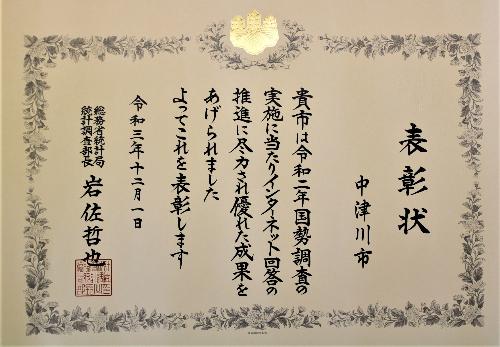 表彰状
中津川市
貴市は令和二年国勢調査の
実施に当たりインターネット回答の
推進に尽力され優れた成果を
あげられました
よってこれを表彰します
令和三年十二月一日
総務省統計局
統計調査部長
岩佐哲也